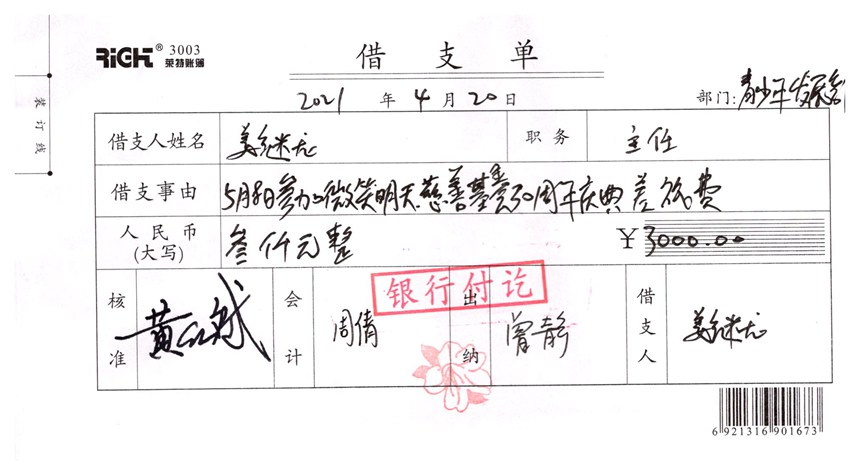 RiGHT® 3003
莱特账簿
借支单
2021 年 4 月 20 日
部门: 青少年发展
装订线
借支人姓名 姜继龙 职务 主任
借支事由 5月8日参加微笑明天慈善基金会30周年庆典差旅费
人民币
(大写) 叁仟元整 ¥3000.00
银行付讫
核准 会计 周倩 出纳 曾静 借支人 姜继龙
6 921316 901673